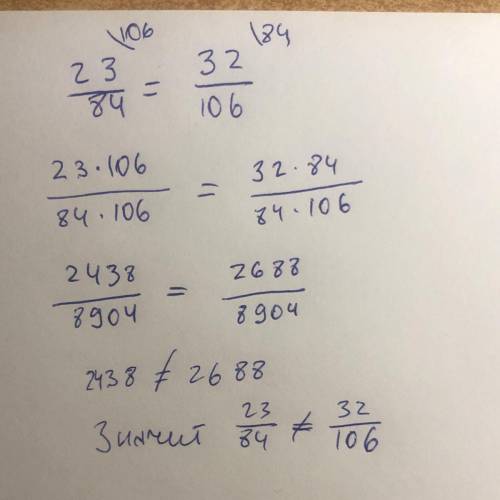 \106 \84
23/84 = 32/106
23·106/84·106 = 32·84/84·106
2438/8904 = 2688/8904
2438 ≠ 2688
Значит 23/84 ≠ 32/106